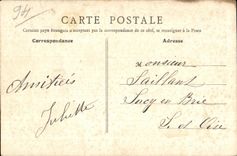 94
CARTE POSTALE
Certains pays étrangers n'acceptent pas la correspondance de ce côté, se renseigner à la Poste
Correspondance
Adresse
Monsieur
Amitiés
Saillant
Juliette
Sucy en Brie
S. et Oise